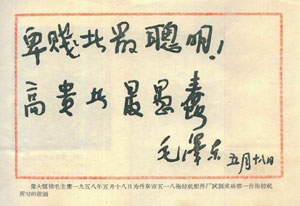 卑贱者最聪明！
高貴者最愚蠢
毛泽东
五月十八日
偉大領袖毛主席一九五八年五月十八日为丹东市五一八拖拉机配件厂試制成功第一台拖拉机
所写的批語